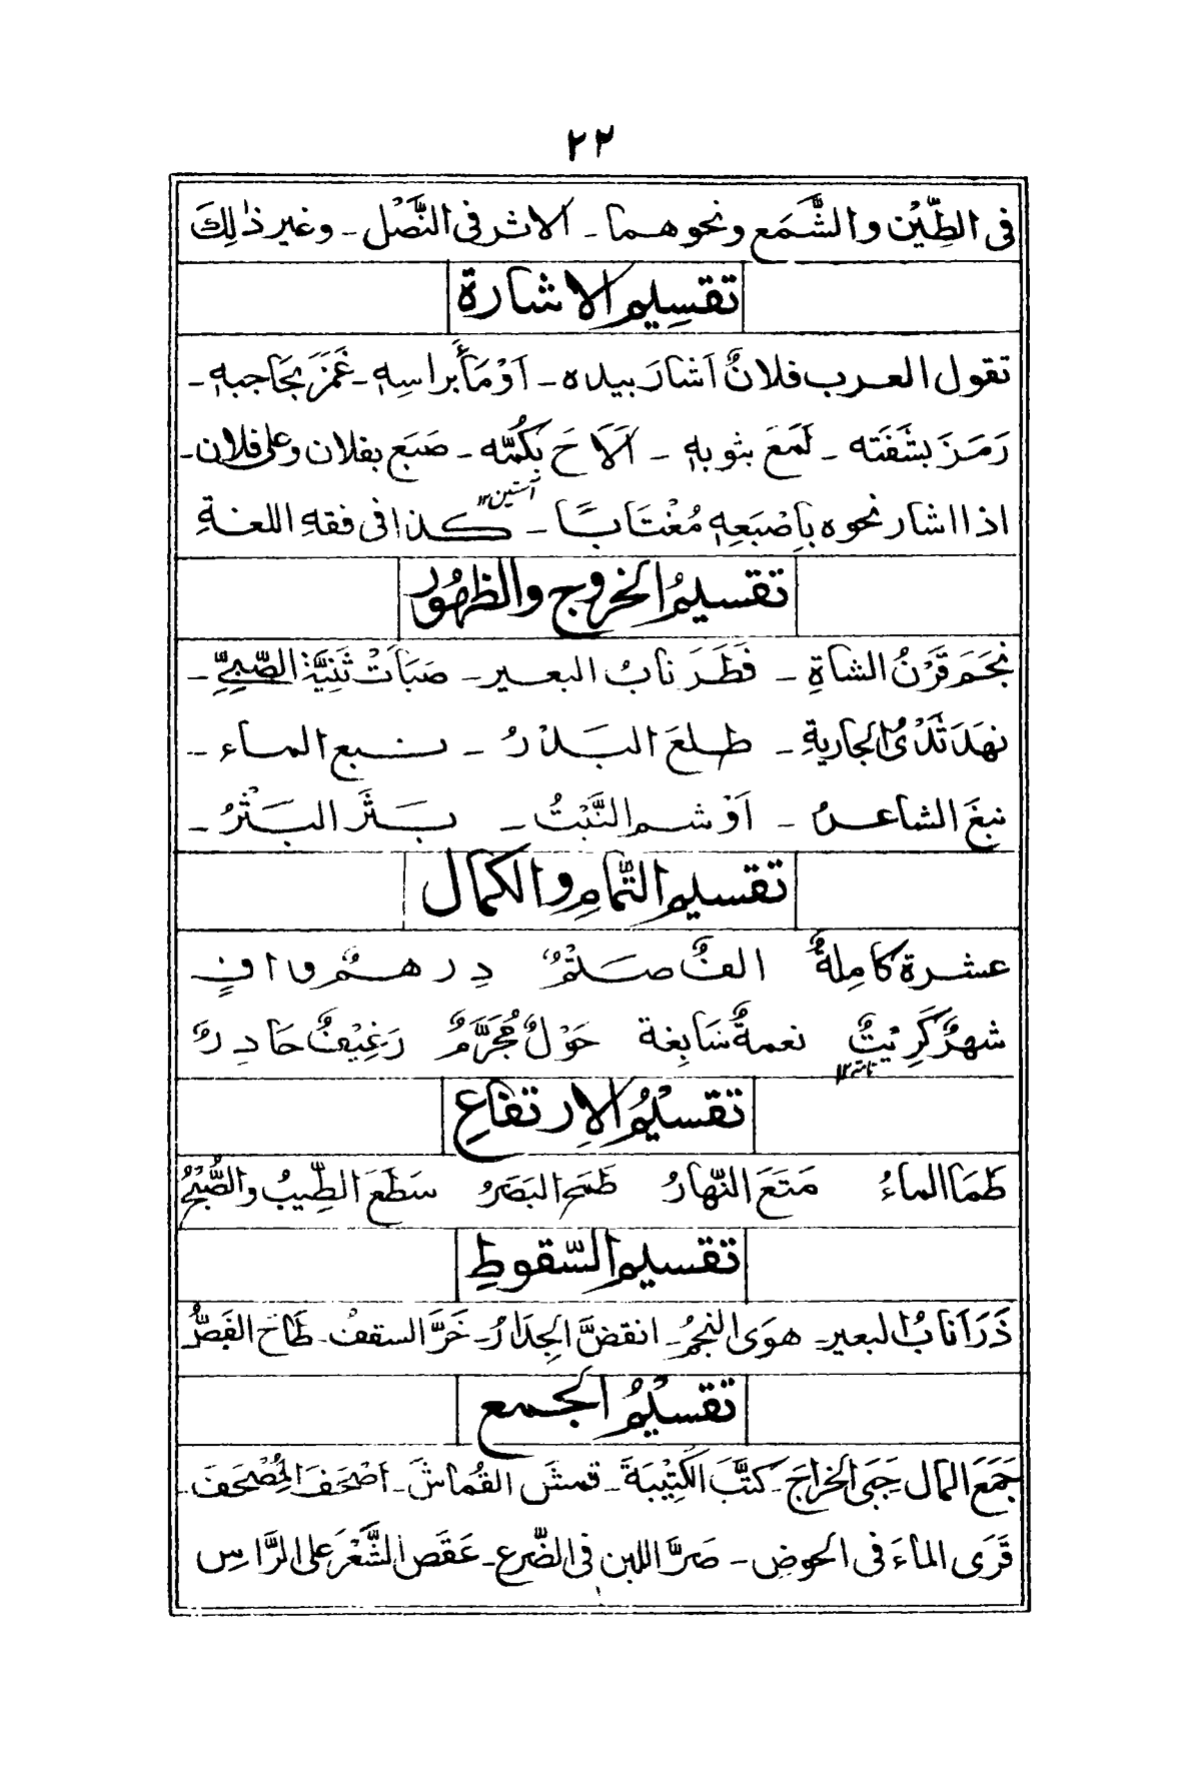 ٢٢
فى الطِّيْن والشَّمَع ونحوهما ـ الاثر فى النَّصْل ـ وغير ذٰلِكَ
تقسِيم الاشارة
تقول العرب فلانٌ اَشارَ بيده ـ اَوْمَأَ براسِهٖ ـ غَمَزَ بحَاجبهٖ ـ
رَمَزَ بشَفَته ـ لَمَعَ بثوبهٖ ـ اَلَاحَ بِكُمّهٖ ـ صَبَع بفلان وعلى فلان ـ
آستین ١٢
اذا اشار نحوه باِصْبَعِهٖ مُغْتَابًا ـ كذا فى فقهِ اللغةِ
تقسيمُ الخروج والظهُور
نجَمَ قَرْنُ الشاةِ ـ فَطَرَ نابُ البعير ـ صَبَأتْ ثَنِيَّةُ الصَّبِيِّ ـ
نهَدَ ثَدْىُ الجاريةِ ـ طلعَ البَدْرُ ـ نبع الماء ـ
نبغَ الشاعرُ ـ اَوْشم النَّبْتُ ـ بَثَرَ البَثْرُ ـ
تقسيم التّمامِ والكمال
عشرة كامِلةٌ الفٌ صَتْمٌ دِرهمٌ وافٍ
شهرٌ كَرِيْتٌ نعمةٌ سَابِغة حَوْلٌ مُجَرَّمٌ رَغِيْفٌ حَادِرٌ
تامّہ ١٢
تقسيْمُ الاِرتفاعِ
طَمَا الماءُ مَتَعَ النّهارُ طَمَح البَصَرُ سَطَعَ الطِّيبُ والصُّبْحُ
تقسيم السّقوطِ
ذَرَاَ نابُ البعير ـ هوَى النجمُ ـ انقضَّ الجِدَارُ ـ خَرَّ السقفُ ـ طَاحَ الفَصُّ
تقسيْمُ الجمع
جَمَعَ المال جَبَى الخراجَ ـ كتَّبَ الكَتِيْبَةَ ـ قمشَ القُماشَ ـ اَصْحَفَ المُصْحَفَ ـ
قَرَى الماءَ فى الحوضِ ـ صَرَّ اللبن فى الضّرع ـ عَقَصَ الشَّعْرَ على الرَّاسِ